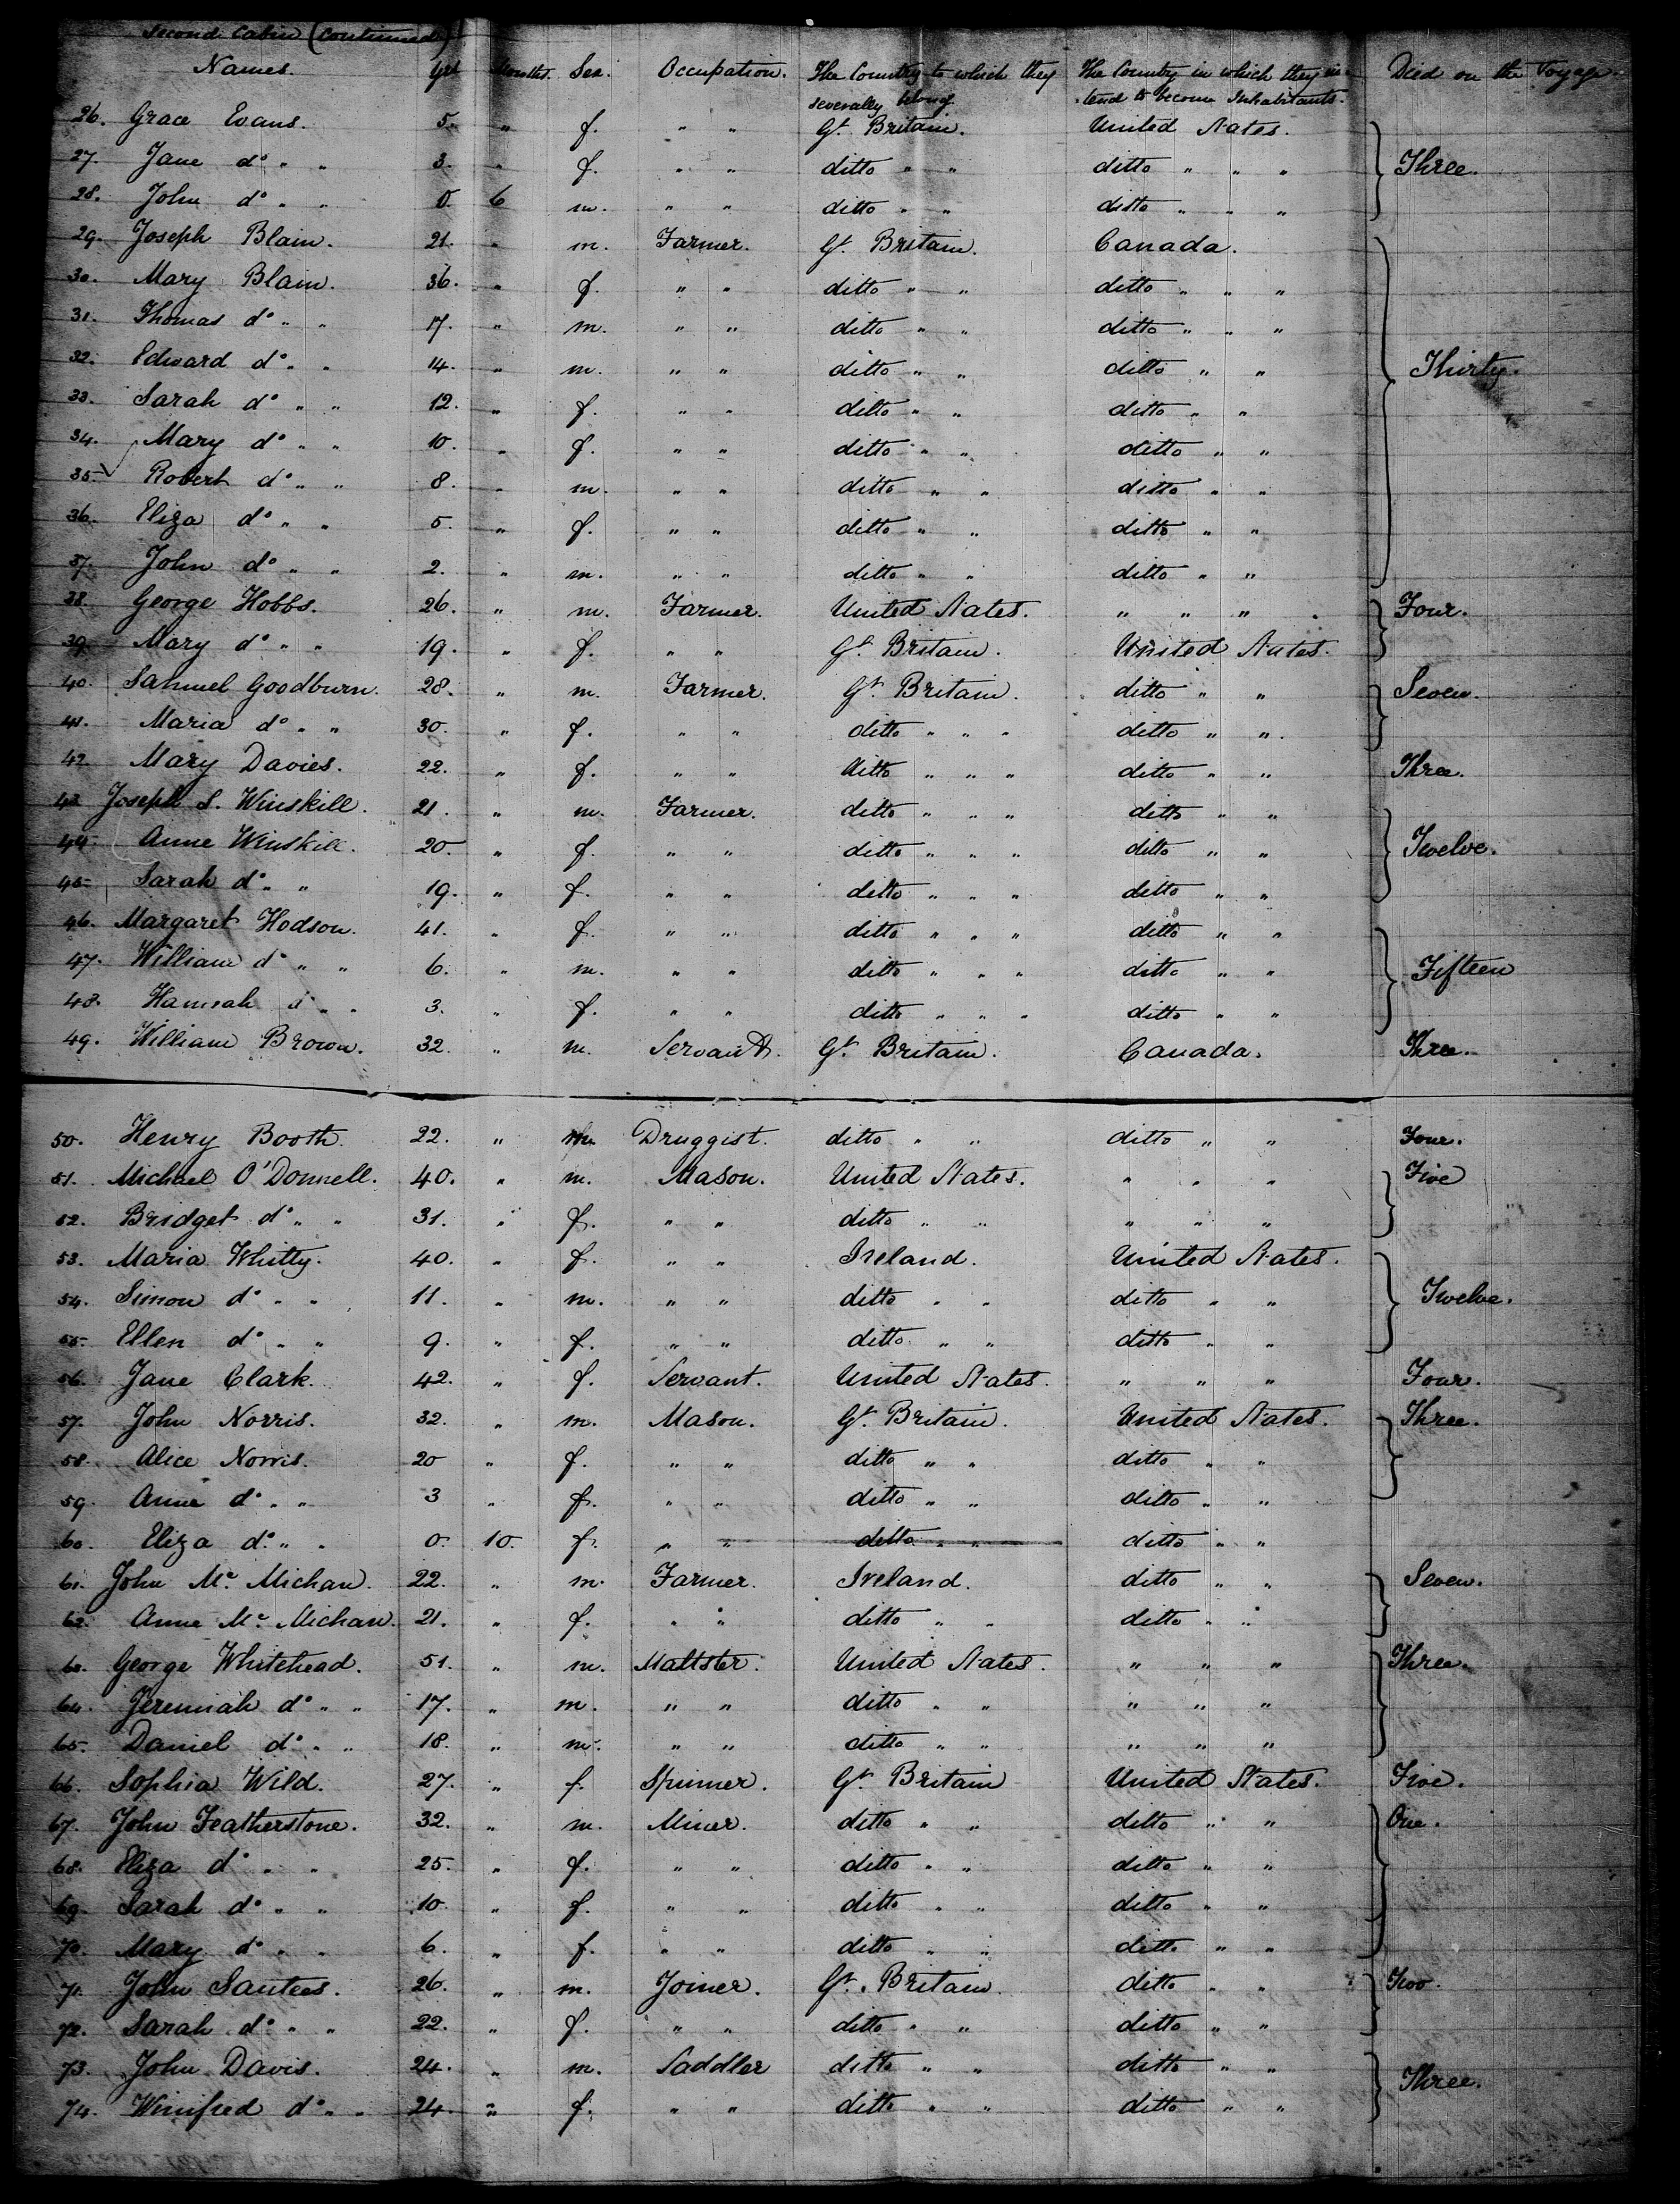 Second Cabin (Continued)
Names. Yrs Months. Sex. Occupation. The Country to which they severally belong. The Country in which they intend to become Inhabitants. Died on the Voyage.
26. Grace Evans. 5. " f. " " Gt. Britain. United States.
27. Jane do " " 3. " f. " " ditto " " ditto " " " Three.
28. John do " " 0. 6 m. " " ditto " " ditto " " "
29. Joseph Blain. 21. " m. Farmer. Gt. Britain. Canada.
30. Mary Blain. 36. " f. " " ditto " " ditto " " "
31. Thomas do " " 17. " m. " " ditto " " ditto " " "
32. Edward do " " 14. " m. " " ditto " " ditto " " Thirty.
33. Sarah do " " 12. " f. " " ditto " " ditto " "
34. Mary do " " 10. " f. " " ditto " " ditto " "
35. Robert do " " 8. " m. " " ditto " " ditto " "
36. Eliza do " " 5. " f. " " ditto " " ditto " "
37. John do " " 2. " m. " " ditto " " ditto " "
38. George Hobbs. 26. " m. Farmer. United States. " " " Four.
39. Mary do " " 19. " f. " " Gt. Britain. United States.
40. Samuel Goodburn. 28. " m. Farmer. Gt. Britain. ditto " " Seven.
41. Maria do " " 30. " f. " " ditto " " " ditto " "
42. Mary Davies. 22. " f. " " ditto " " " ditto " " Three.
43 Joseph S. Winskill. 21. " m. Farmer. ditto " " " ditto " "
44. Anne Winskill. 20. " f. " " ditto " " " ditto " " Twelve.
45. Sarah do " " 19. " f. " " ditto " " " ditto " "
46. Margaret Hodson. 41. " f. " " ditto " " " ditto " "
47. William do " " 6. " m. " " ditto " " " ditto " " Fifteen
48. Hannah do " " 3. " f. " " ditto " " " ditto " "
49. William Brown. 32. " m. Servant. Gt. Britain. Canada. Three.
50. Henry Booth. 22. " m. Druggist. ditto " " ditto " " Four.
51. Michael O'Donnell. 40. " m. Mason. United States. " " " Five
52. Bridget do " " 31. " f. " " ditto " " " " "
53. Maria Whitty. 40. " f. " " Ireland. United States.
54. Simon do " " 11. " m. " " ditto " " ditto " " Twelve.
55. Ellen do " " 9. " f. " " ditto " " ditto " "
56. Jane Clark. 42. " f. Servant. United States. " " " Four.
57. John Norris. 32. " m. Mason. Gt. Britain. United States. Three.
58. Alice Norris. 20 " f. " " ditto " " ditto " "
59. Anne do " " 3 " f. " " ditto " " ditto " "
60. Eliza do " " 0. 10. f. " " ditto " " ditto " "
61. John Mc. Michan. 22. " m. Farmer. Ireland. ditto " " Seven.
62. Anne Mc. Michan. 21. " f. " " ditto " " ditto " "
63. George Whitehead. 51. " m. Maltster. United States. " " " Three.
64. Jeremiah do " " 17. " m. " " ditto " " " " "
65. Daniel do " " 18. " m. " " ditto " " " " "
66. Sophia Wild. 27. " f. Spinner. Gt. Britain United States. Five.
67. John Featherstone. 32. " m. Miner. ditto " " ditto " " One.
68. Eliza do " " 25. " f. " " ditto " " ditto " "
69. Sarah do " " 10. " f. " " ditto " " ditto " "
70. Mary do " " 6. " f. " " ditto " " ditto " "
71. John Santees. 26. " m. Joiner. Gt. Britain. ditto " " Two.
72. Sarah do " " 22. " f. " " ditto " " ditto " "
73. John Davis. 24. " m. Saddler ditto " " ditto " "
74. Winifred do " " 24. " f. " " ditto " " ditto " " Three.